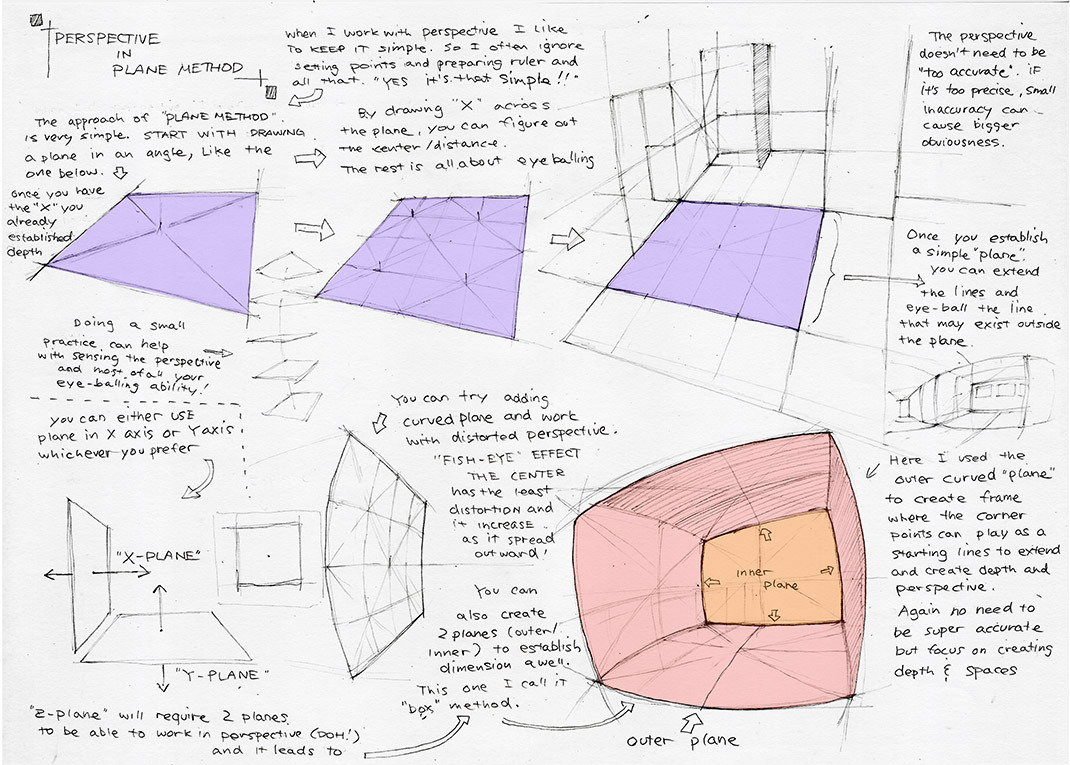 PERSPECTIVE
IN
PLANE METHOD
when I work with perspective I like
to KEEP IT simple. So I often ignore
seting points and preparing ruler and
all that. "YES it's that Simple!!"
The approach of "PLANE METHOD".
is very simple. START WITH DRAWING
a plane in an angle, Like the
one below.
By drawing "X" across
the plane, you can figure out
the center/distance.
The rest is all about eyeballing
The perspective
doesn't need to be
"too accurate". iF
it's too precise, small
inaccuracy can
cause bigger
obviousness.
once you have
the "X" you
already
established
depth
Once you establish
a simple "plane".
you can extend
the lines and
eye-ball the line
that may exist outside
the plane.
Doing a small
practice can help
with sensing the perspective
and most of all your
eye-balling ability!
you can either USE
plane in X axis or Y axis
whichever you prefer
"X-PLANE"
"Y-PLANE"
"Z-plane" will require 2 planes
to be able to work in perspective (DOH!)
and it leads to
You can try adding
curved plane and work
with distorted perspective.
"FISH-EYE" EFFECT
THE CENTER
has the least
distortion and
it increase
as it spread
outward!
You can
also create
2 planes (outer/
inner) to establish
dimension awell.
This one I call it
"box" method.
inner
plane
outer plane
Here I used the
outer curved "plane"
to create frame
where the corner
points can play as a
starting lines to extend
and create depth and
perspective.
Again no need to
be super accurate
but focus on creating
depth & spaces